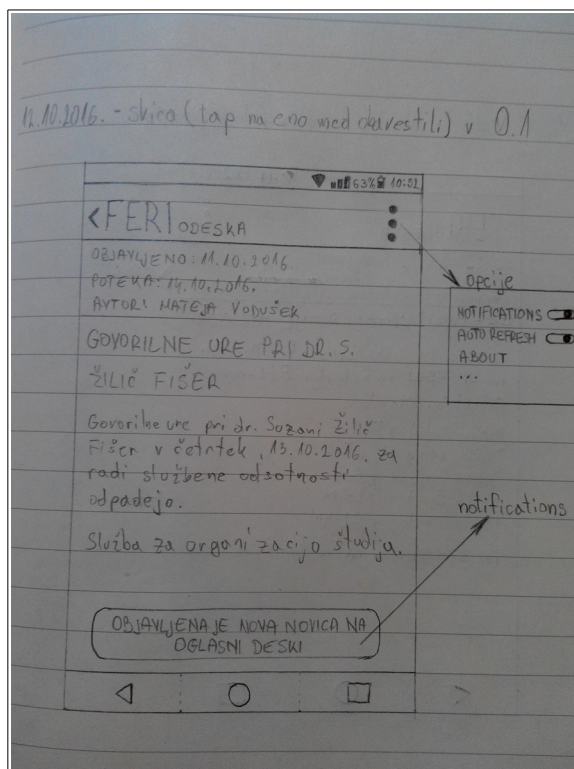 12.10.2016. - skica (tap na eno med obvestili) v 0.1
63% 10:52
< FERI ODESKA
OBJAVLJENO: 11.10.2016.
POTEKA: 14.10.2016.
AVTOR: MATEJA VODUŠEK
GOVORILNE URE PRI DR. S.
ŽILIČ FIŠER
Govorilne ure pri dr. Suzani Žilič
Fišer v četrtek, 13.10.2016. za
radi službene odsotnosti
odpadejo.
Služba za organizacijo študija.
OBJAVLJENA JE NOVA NOVICA NA
OGLASNI DESKI
opcije
NOTIFICATIONS
AUTO REFRESH
ABOUT
...
notifications